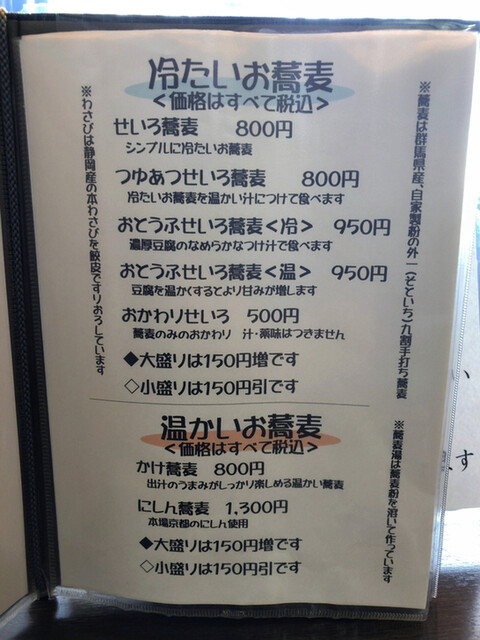 冷たいお蕎麦
＜価格はすべて税込＞
せいろ蕎麦 800円
シンプルに冷たいお蕎麦
つゆあつせいろ蕎麦 800円
冷たいお蕎麦を温かい汁につけて食べます
おとうふせいろ蕎麦＜冷＞ 950円
濃厚豆腐のなめらかなつけ汁で食べます
おとうふせいろ蕎麦＜温＞ 950円
豆腐を温かくするとより甘みが増します
おかわりせいろ 500円
蕎麦のみのおかわり 汁・薬味はつきません
◆大盛りは150円増です
◇小盛りは150円引です
※蕎麦は群馬県産、自家製粉の外一(そといち)九割手打ち蕎麦
※わさびは静岡産の本わさびを鮫皮ですりおろしています
温かいお蕎麦
＜価格はすべて税込＞
かけ蕎麦 800円
出汁のうまみがしっかり楽しめる温かい蕎麦
にしん蕎麦 1,300円
本場京都のにしん使用
◆大盛りは150円増です
◇小盛りは150円引です
※蕎麦湯は蕎麦粉を溶いて作っています
い
ます